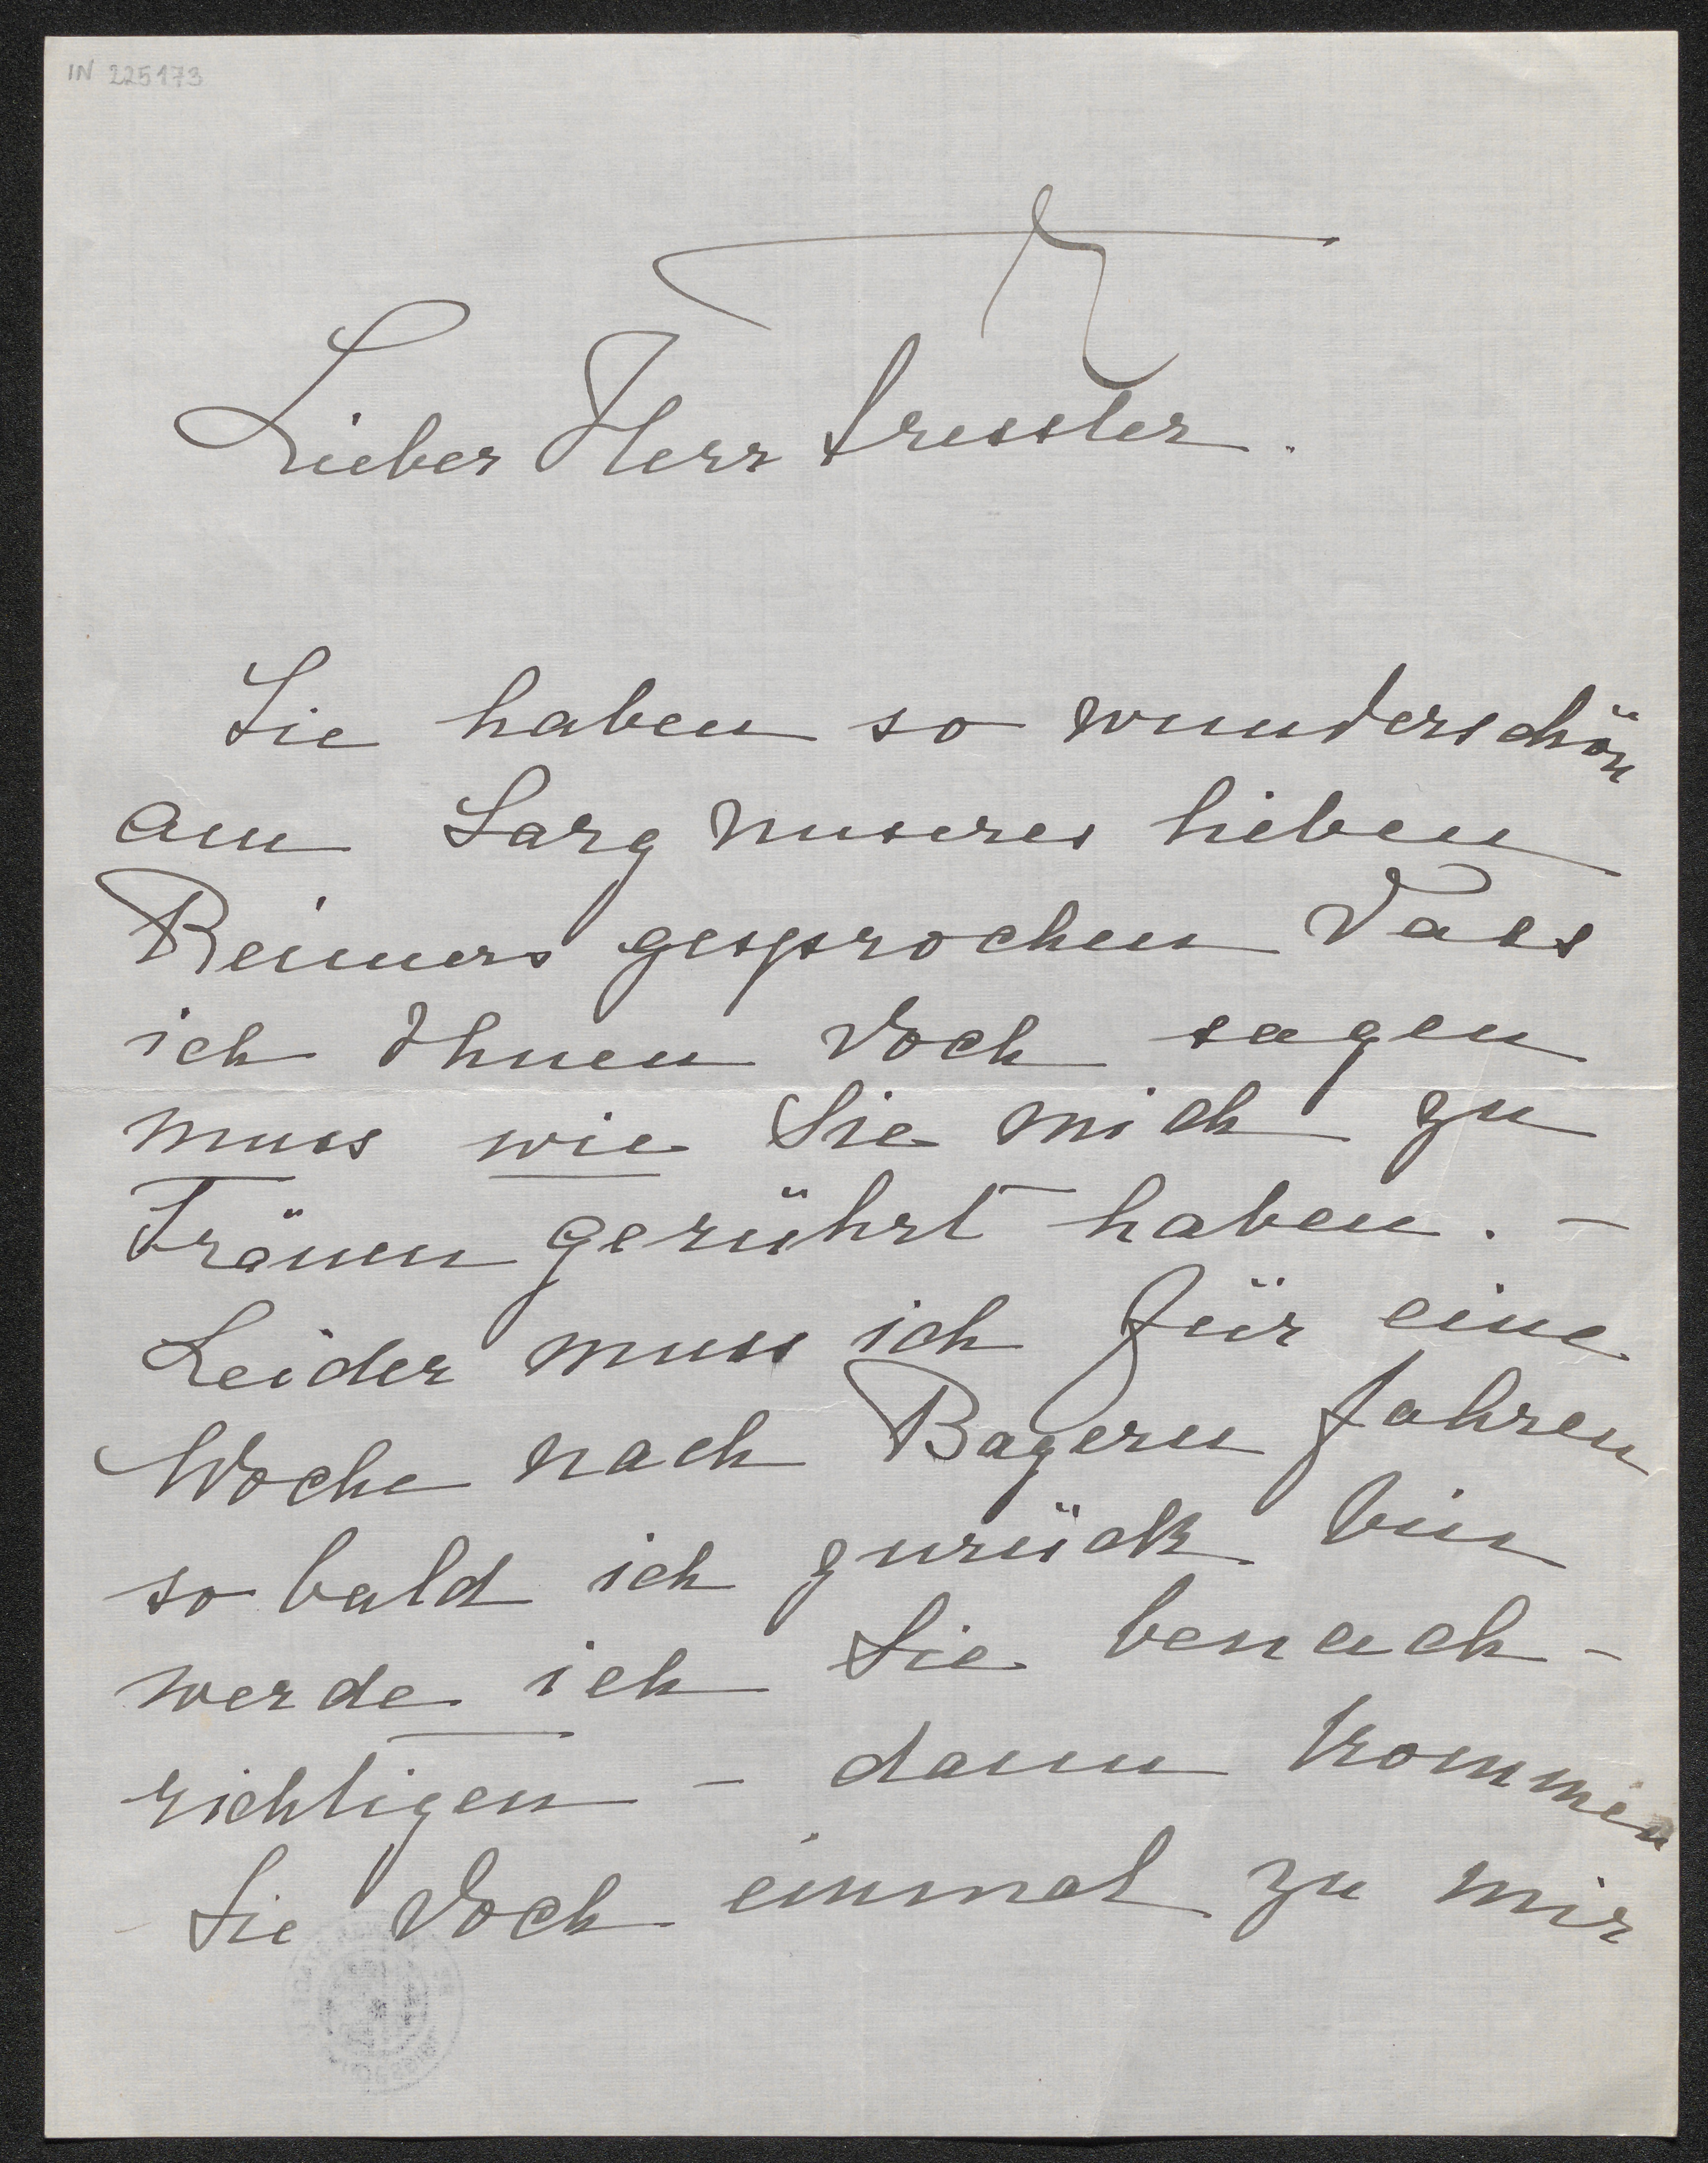 IN 225173
Lieber Herr Tressler.
Sie haben so wunderschön
am Sarg unseres lieben
Reimers gesprochen dass
ich Ihnen doch sagen
muss wie Sie mich zu
Tränen gerührt haben. –
Leider muss ich für eine
Woche nach Bayern fahren
so bald ich zurück bin
werde ich Sie benach-
richtigen – dann kommen
Sie doch einmal zu mir